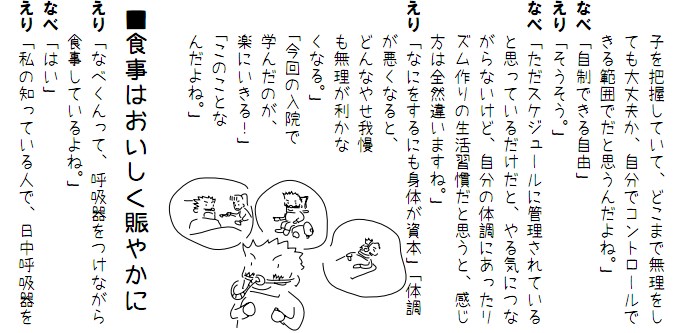 子を把握していて、どこまで無理をし
ても大丈夫か、自分でコントロールで
きる範囲でだと思うんだよね。」
なべ「自制できる自由」
えり「そうそう。」
なべ「ただスケジュールに管理されている
と思っているだけだと、やる気につな
がらないけど、自分の体調にあったリ
ズム作りの生活習慣だと思うと、感じ
方は全然違いますね。」
えり「なにをするにも身体が資本」「体調
が悪くなると、
どんなやせ我慢
も無理が利かな
くなる。」
「今回の入院で
学んだのが、
楽にいきる！」
「このことな
んだよね。」
■食事はおいしく賑やかに
えり「なべくんって、呼吸器をつけながら
食事しているよね。」
なべ「はい」
えり「私の知っている人で、日中呼吸器を